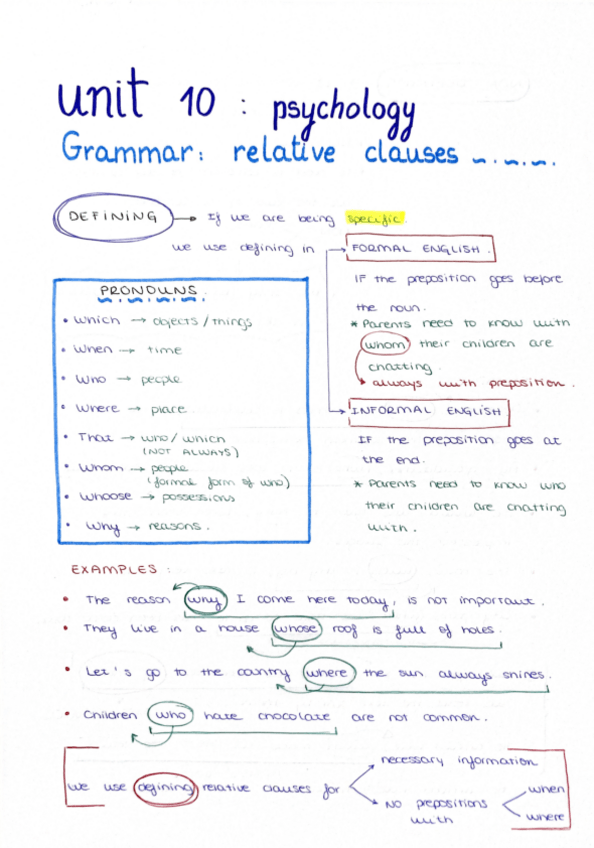 unit 10 : psychology
Grammar: relative clauses
DEFINING → If we are being specific.
we use defining in
FORMAL ENGLISH.
IF the preposition goes before
the noun.
* Parents need to know with
whom their children are
chatting.
always with preposition.
INFORMAL ENGLISH
IF the preposition goes at
the end.
* Parents need to know who
their children are chatting
with.
PRONOUNS.
• Which → objects/things
• When → time
• Who → people
• Where → place
• That → who/which
(NOT ALWAYS)
• Whom → people
(formal form of who)
• Whoose → possessions
• Why → reasons.
EXAMPLES:
• The reason why I come here today, is not important.
• They live in a house whose roof is full of holes.
• Let's go to the country where the sun always shines.
• Children who hate chocolate are not common.
We use defining relative clauses for
necessary information
NO prepositions
with
when
where